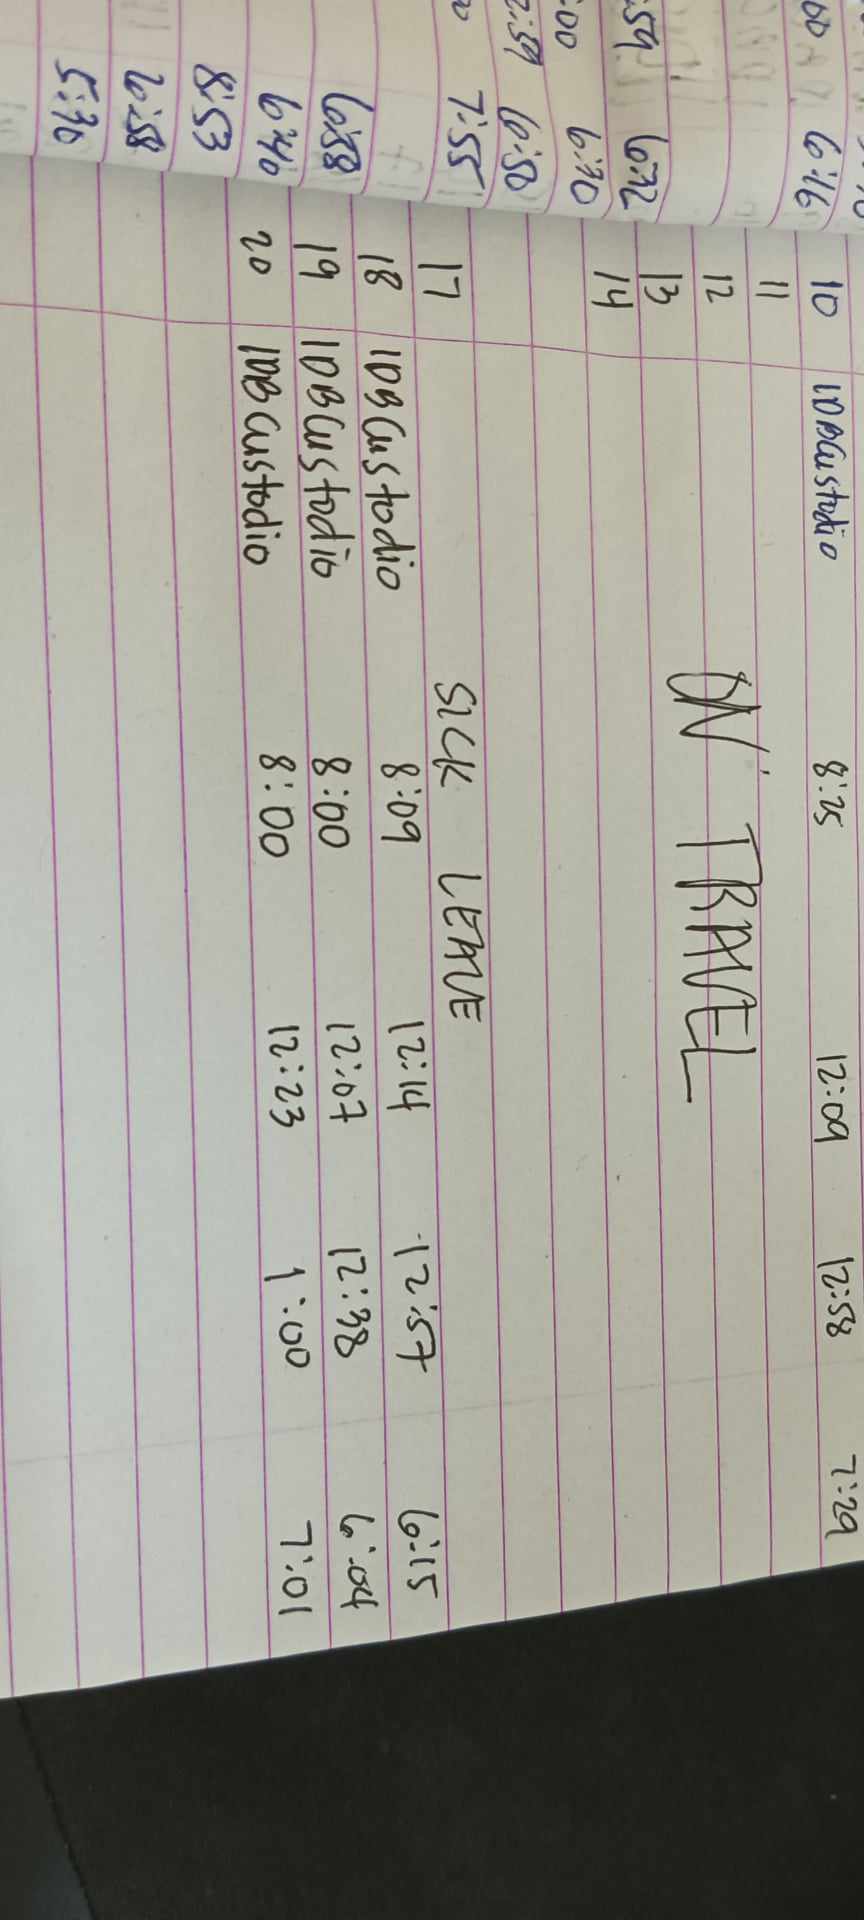 10 IDBCustodio 8:25 12:09 12:58 7:29
11
12 ON TRAVEL
13
14
17 SICK LEAVE
18 IDBCustodio 8:09 12:14 12:57 6:15
19 IDBCustodio 8:00 12:07 12:38 6:04
20 IDBCustodio 8:00 12:23 1:00 7:01
6:16
:59 6:32
:00 6:30
2:59 6:50
7:55
6:58
6:40
8:53
6:58
5:36